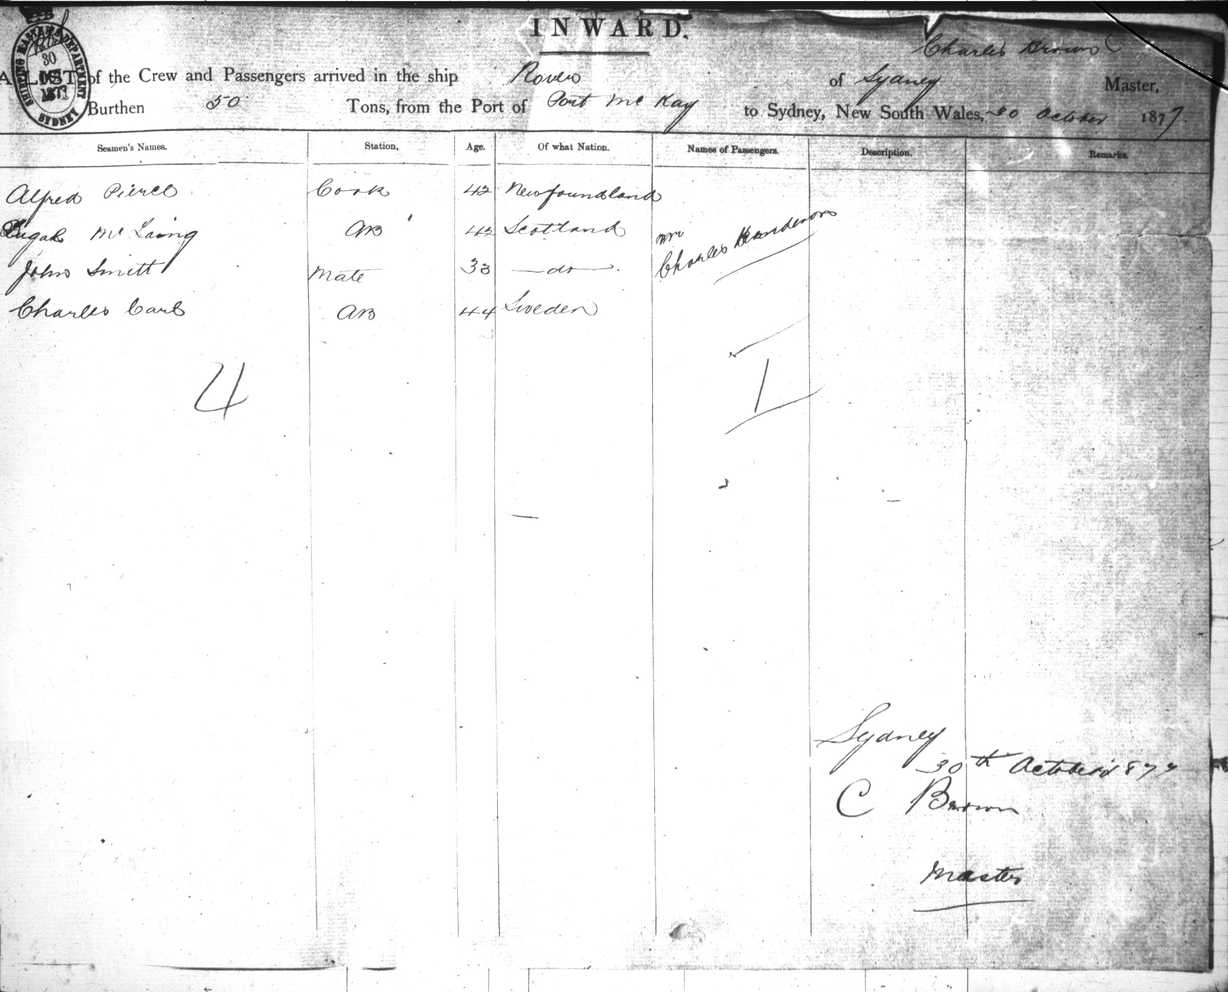 INWARD.
SHIPPING MASTER'S DEPARTMENT SYDNEY
30 OCT 1877
Charles Brown
A LIST of the Crew and Passengers arrived in the ship Rover of Sydney Master,
Burthen 50 Tons, from the Port of Port McKay to Sydney, New South Wales, 30 October 1877
Seamen's Names. Station, Age. Of what Nation. Names of Passengers. Description. Remarks.
Alfred Pierce Cook 42 Newfoundland
McLaing AB 42 Scotland Mr
John Smitt Mate 33 do Charles Henderson
Charles Carl AB 44 Sweden
4 1
Sydney
30th October 1877
C Brown
Master